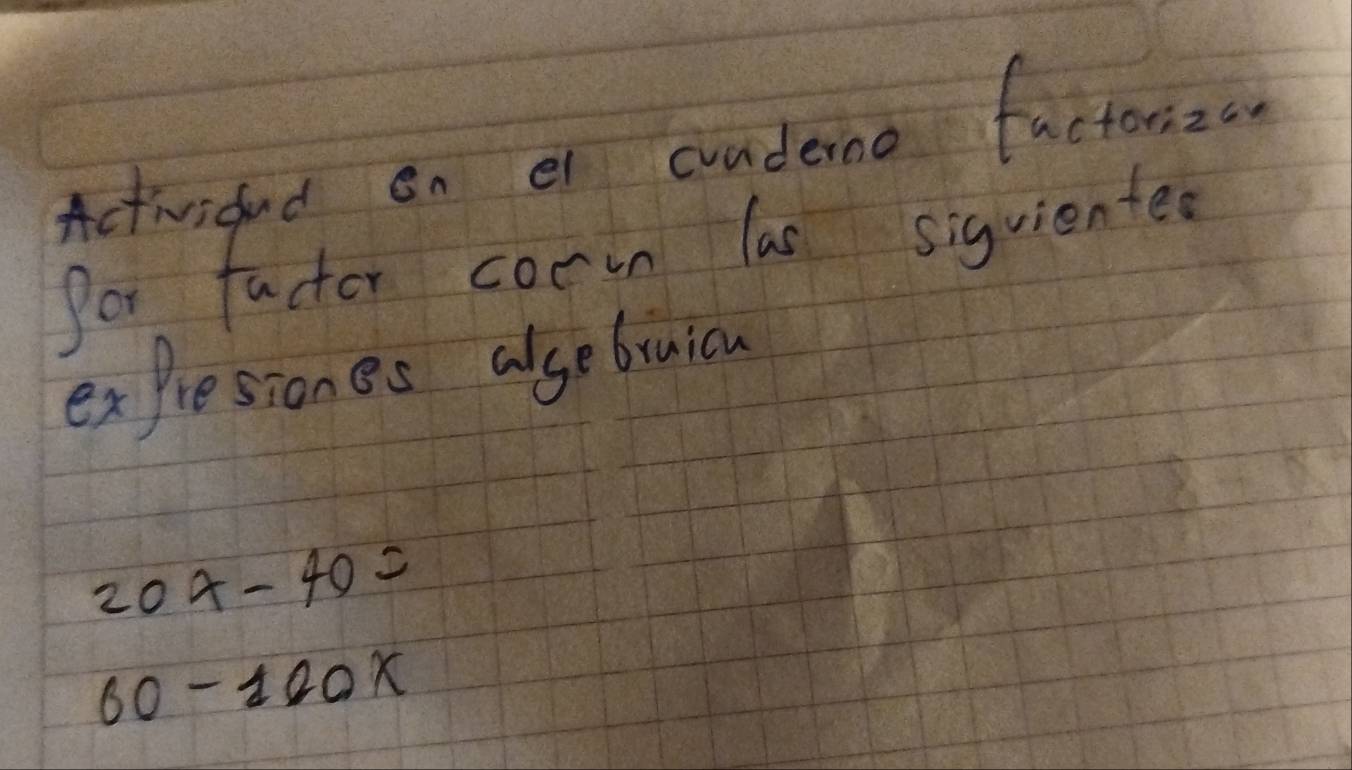 Actividad en el cuaderno factorizar
por factor comun las siguientes
expresiones algebraica
20x - 40 =
60 - 120x